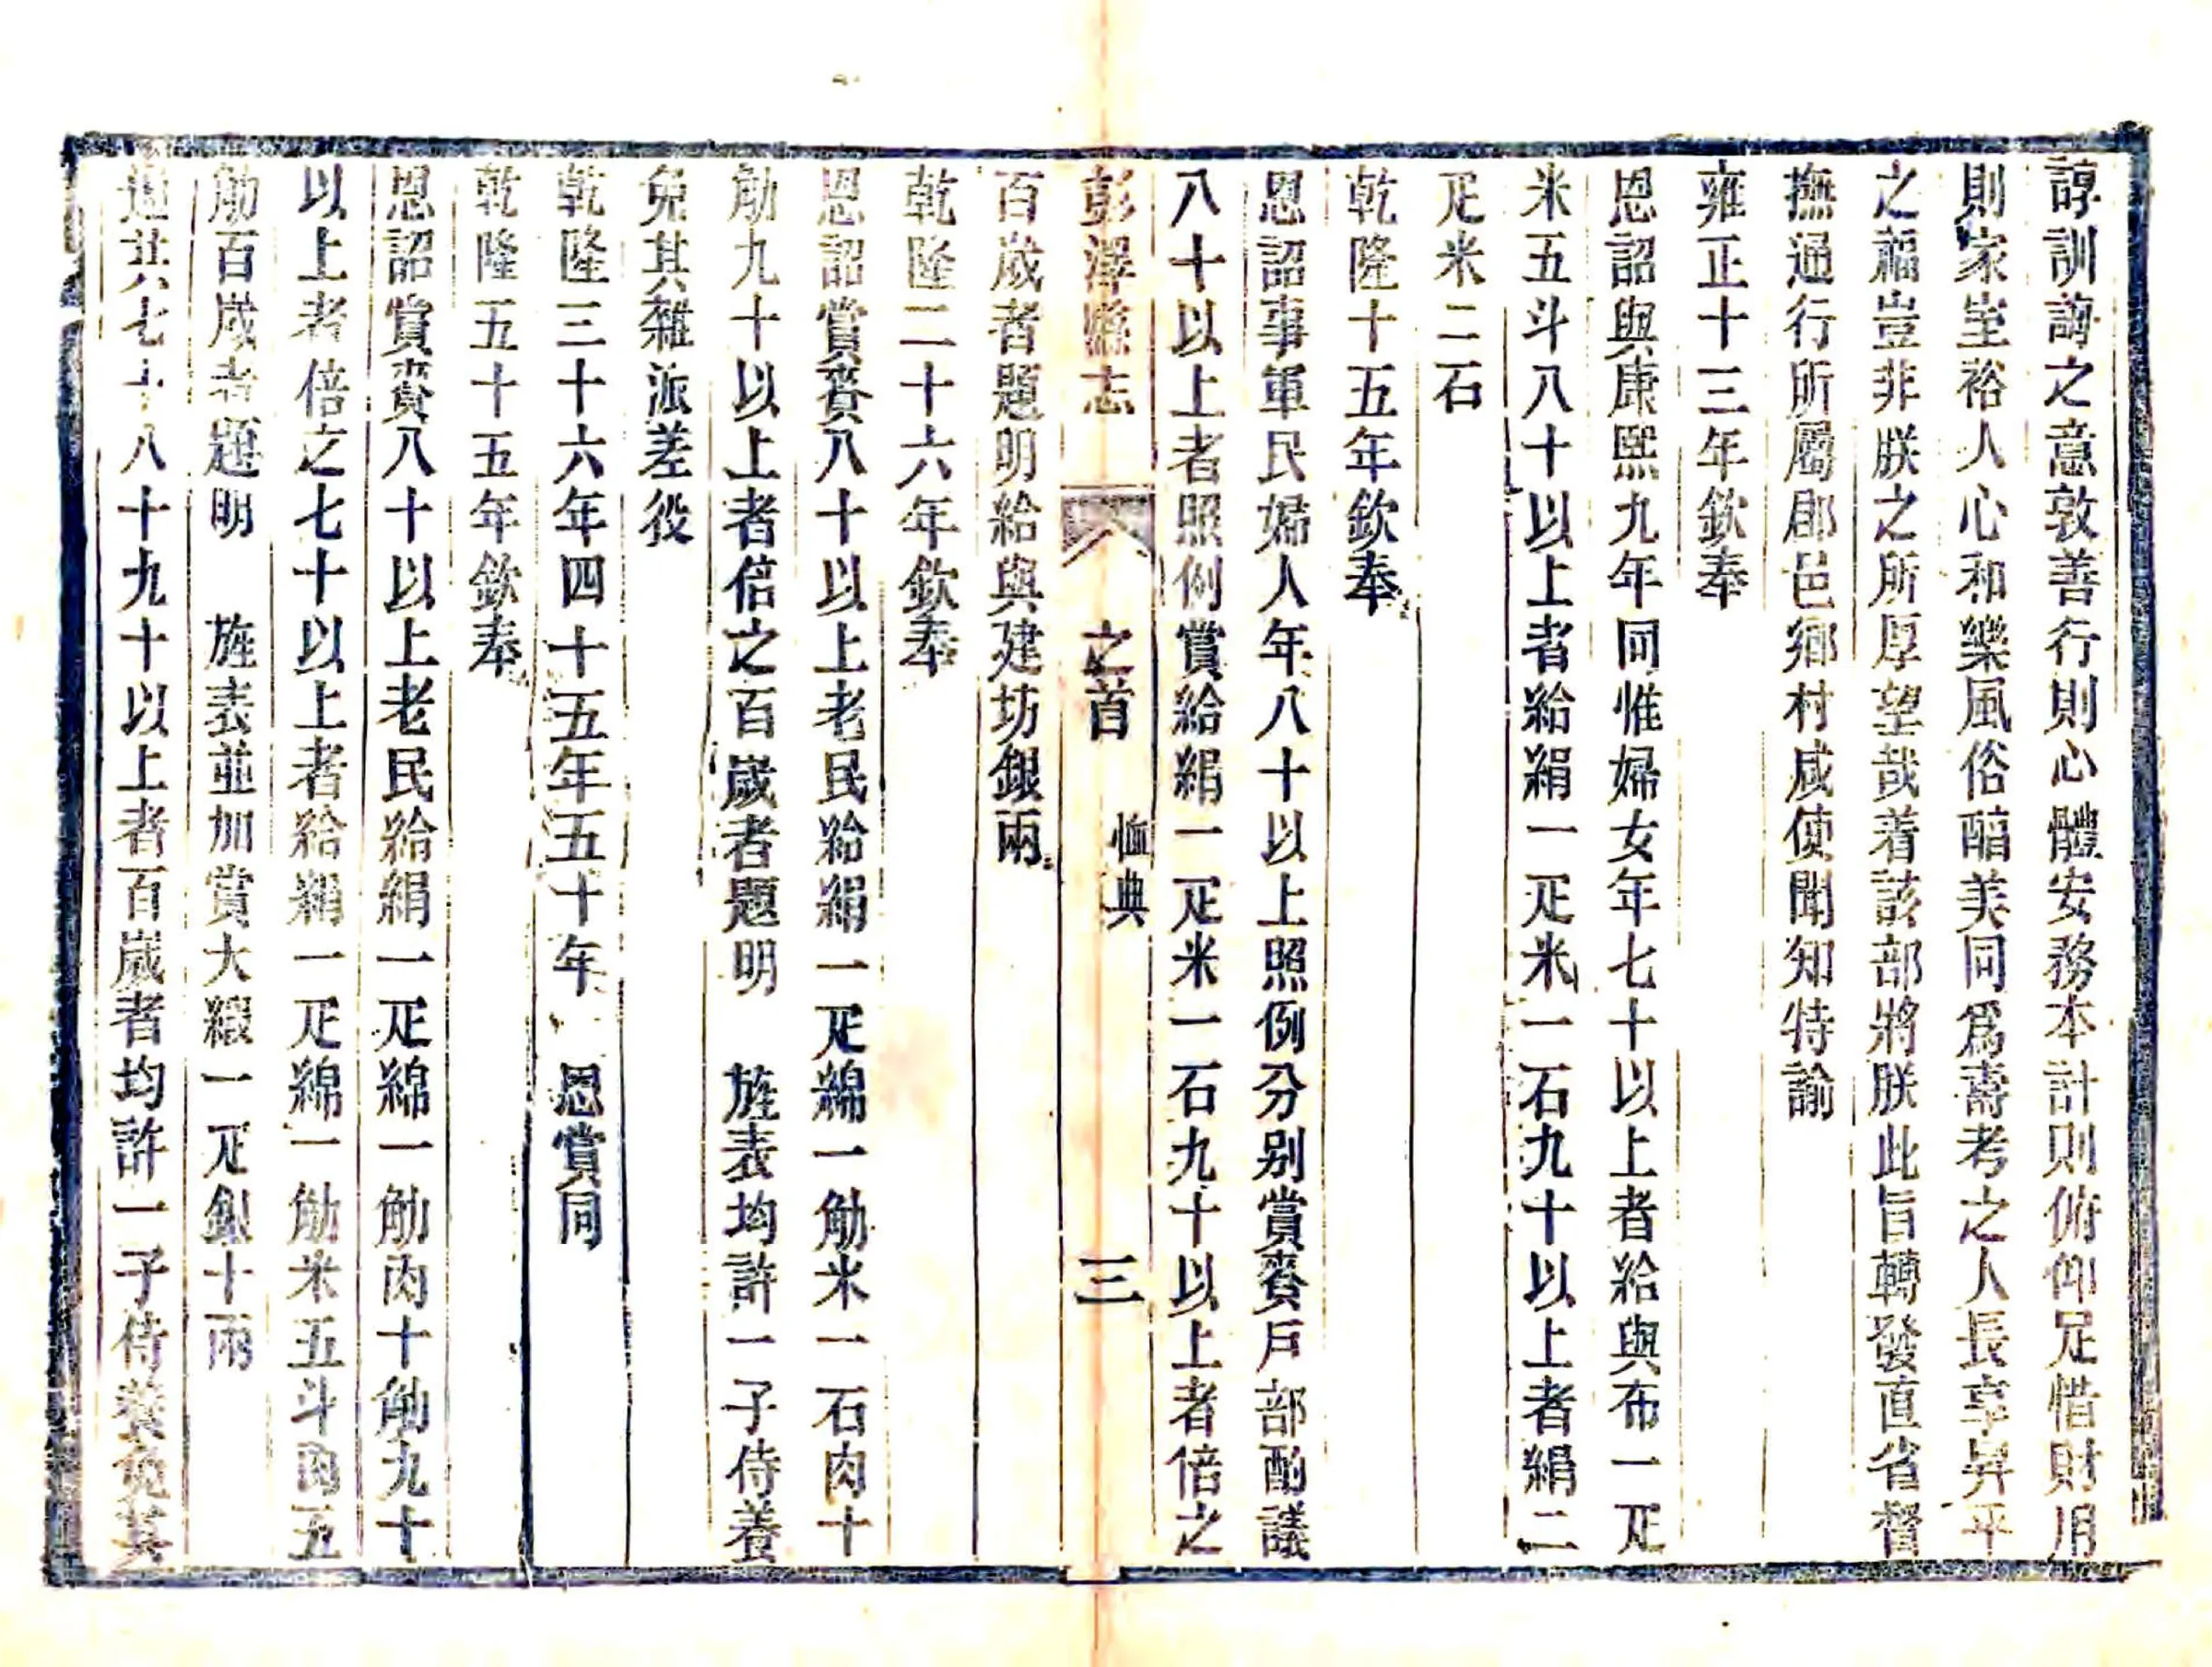 諄訓誨之意敦善行則心體安務本計則俯仰足惜財用
則家室裕人心和樂風俗醕美同爲壽考之人長享昇平
之福豈非朕之所厚望哉着該部將朕此旨轉發直省督
撫通行所屬郡邑鄉村咸使聞知特諭
雍正十三年欽奉
恩詔與康熙九年同惟婦女年七十以上者給與布一疋
米五斗八十以上者給絹一疋米一石九十以上者絹二
疋米二石
乾隆十五年欽奉
恩詔事軍民婦人年八十以上照例分别賞賚戶部酌議
八十以上者照例賞給絹一疋米一石九十以上者倍之
彭澤縣志 之首 恤典 三
百歲者題明給與建坊銀兩
乾隆二十六年欽奉
恩詔賞賚八十以上老民給絹一疋綿一觔米一石肉十
觔九十以上者倍之百歲者題明 旌表均許一子侍養
免其雜派差役
乾隆三十六年四十五年五十年 恩賞同
乾隆五十五年欽奉
恩詔賞賚八十以上老民給絹一疋綿一觔肉十觔九十
以上者倍之七十以上者給絹一疋綿一觔米五斗肉五
觔百歲者題明 旌表並加賞大緞一疋銀十兩
共七十八十九十以上者百歲者均許一子侍養免其